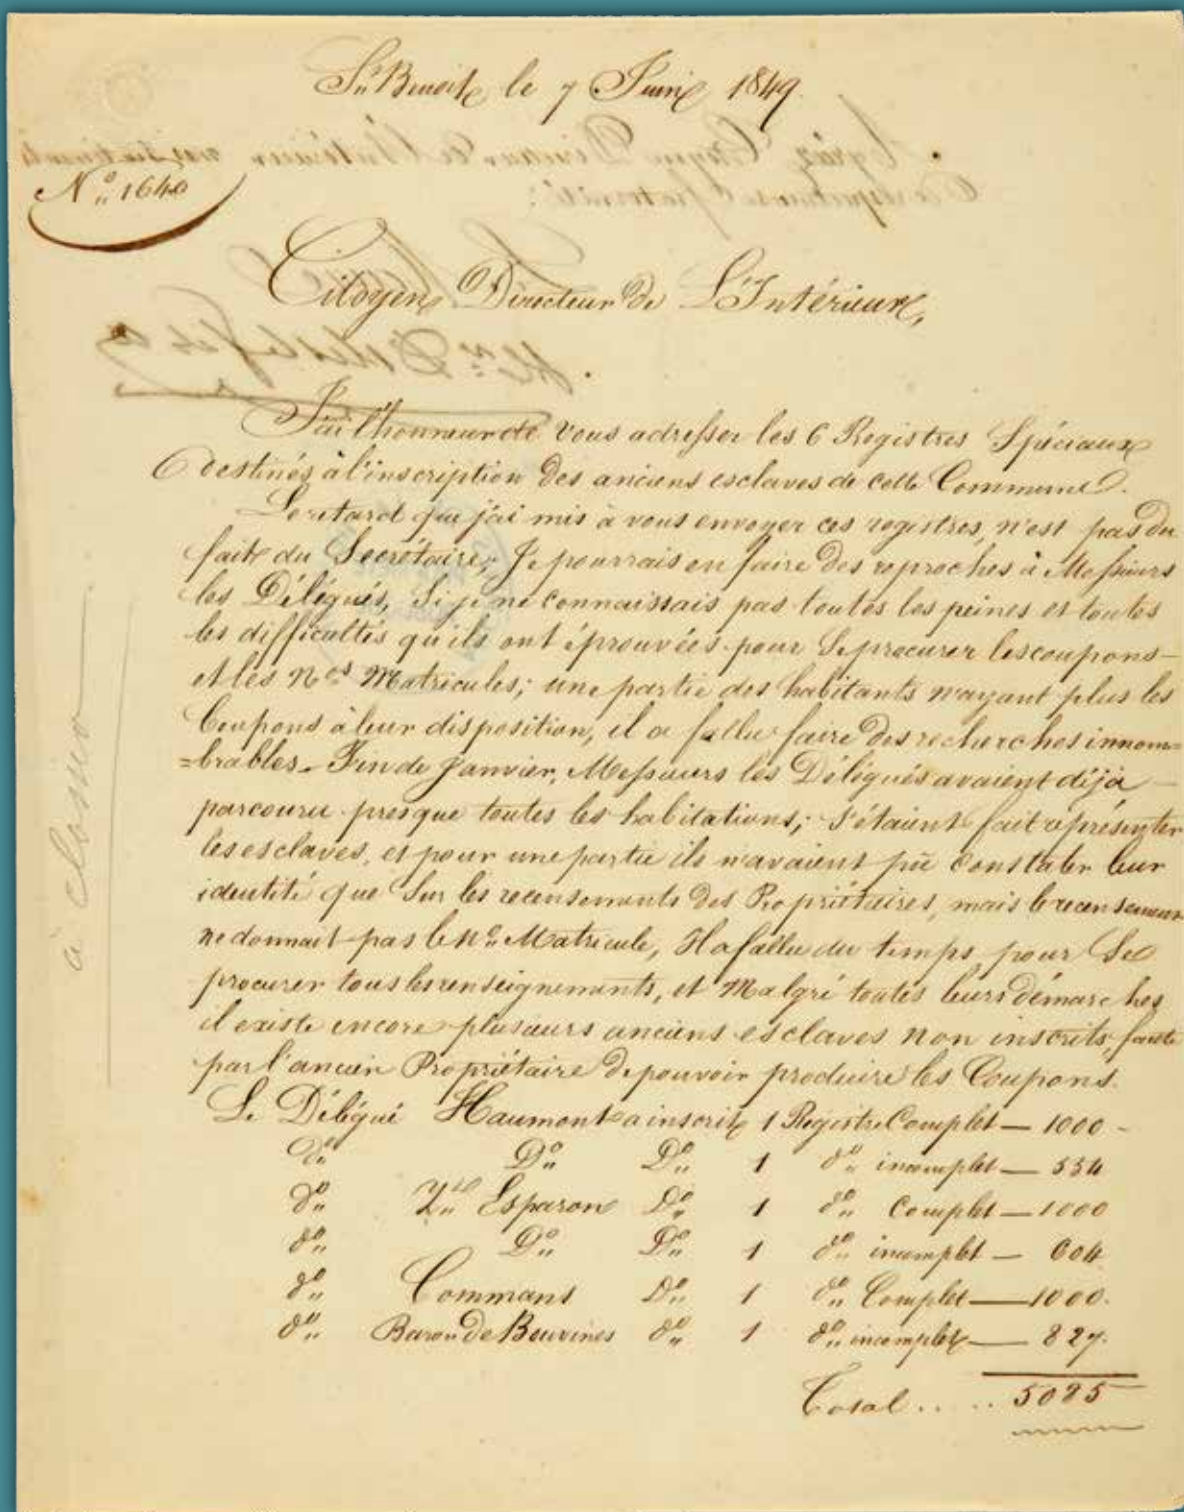 St Benoit le 7 Juin 1849
N.o 1640
Citoyen Directeur De L'Intérieur,
J'ai l'honneur de vous adresser les 6 Registres Spéciaux
destinés à l'inscription Des anciens esclaves de cette Commune.
Le retard que j'ai mis à vous envoyer ces registres, n'est pas du
fait du Secrétaire; Je pourrais en faire Des reproches à Messieurs
les Délégués, Si je ne connaissais pas toutes les peines et toutes
les difficultés qu'ils ont éprouvées pour Se procurer les coupons
et les Nos Matricules; une partie des habitants n'ayant plus les
Coupons à leur disposition, il a fallu faire Des recherches innom=
=brables. Fin de Janvier, Messieurs les Délégués avaient déjà
parcouru presque toutes les habitations; S'étaient fait représenter
les esclaves, et pour une partie ils n'avaient pû Constater leur
identité que Sur les recensements Des Propriétaires, mais le recensement
ne donnait pas le No Matricule, Il a fallu du temps pour Se
procurer tous les renseignements, et Malgré toutes leurs démarches
il existe encore plusieurs anciens esclaves non inscrits, faute
par l'ancien Propriétaire De pouvoir produire les Coupons.
Le Délégué Haumont a inscrit 1 Registre Complet — 1000 -
do Do Do 1 do incomplet — 554
do Esparon Do 1 do Complet — 1000
do Do Do 1 do incomplet — 604
do Commans Do 1 do Complet — 1000.
do Baron De Bouvines do 1 do incomplet — 827.
Total .. .. 5085
à classer